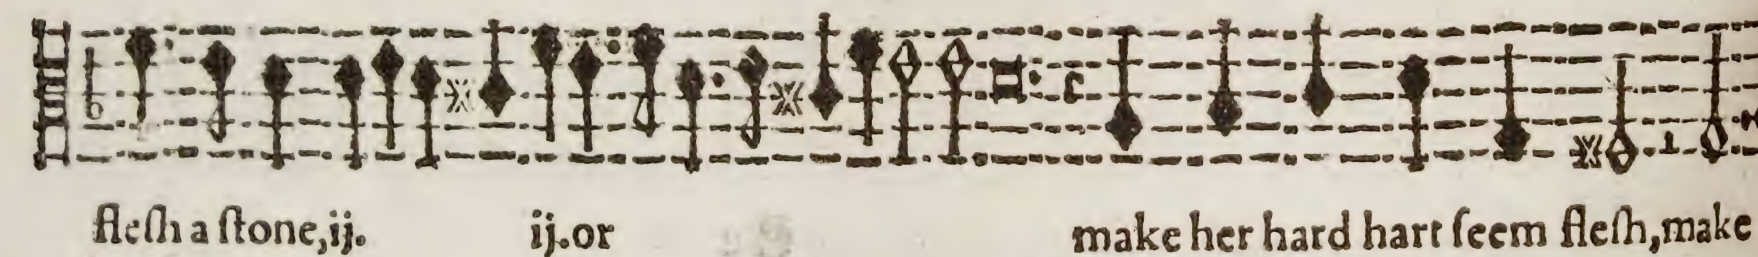 fleſh a ſtone,ij. ij.or make her hard hart ſeem fleſh,make